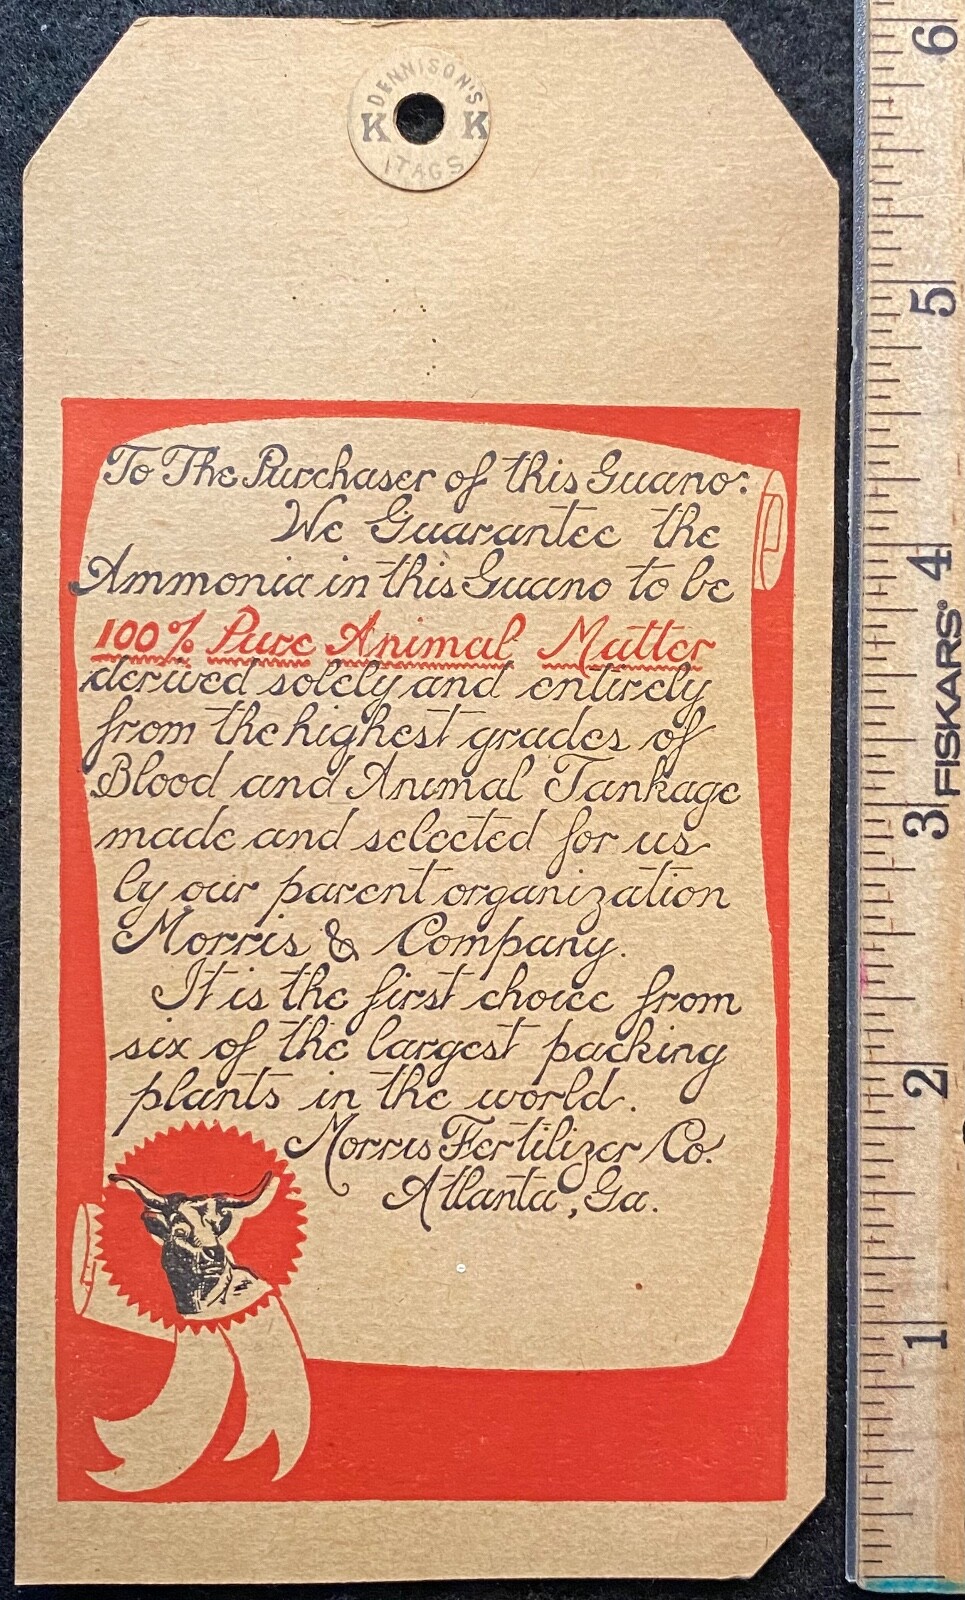 DENNISON'S
K K
TAGS
To The Purchaser of this Guano:
We Guarantee the
Ammonia in this Guano to be
100% Pure Animal Matter
derived solely and entirely
from the highest grades of
Blood and Animal Tankage
made and selected for us
by our parent organization
Morris & Company.
It is the first choice from
six of the largest packing
plants in the world.
Morris Fertilizer Co.
Atlanta, Ga.
6
5
4
FISKARS®
3
2
1